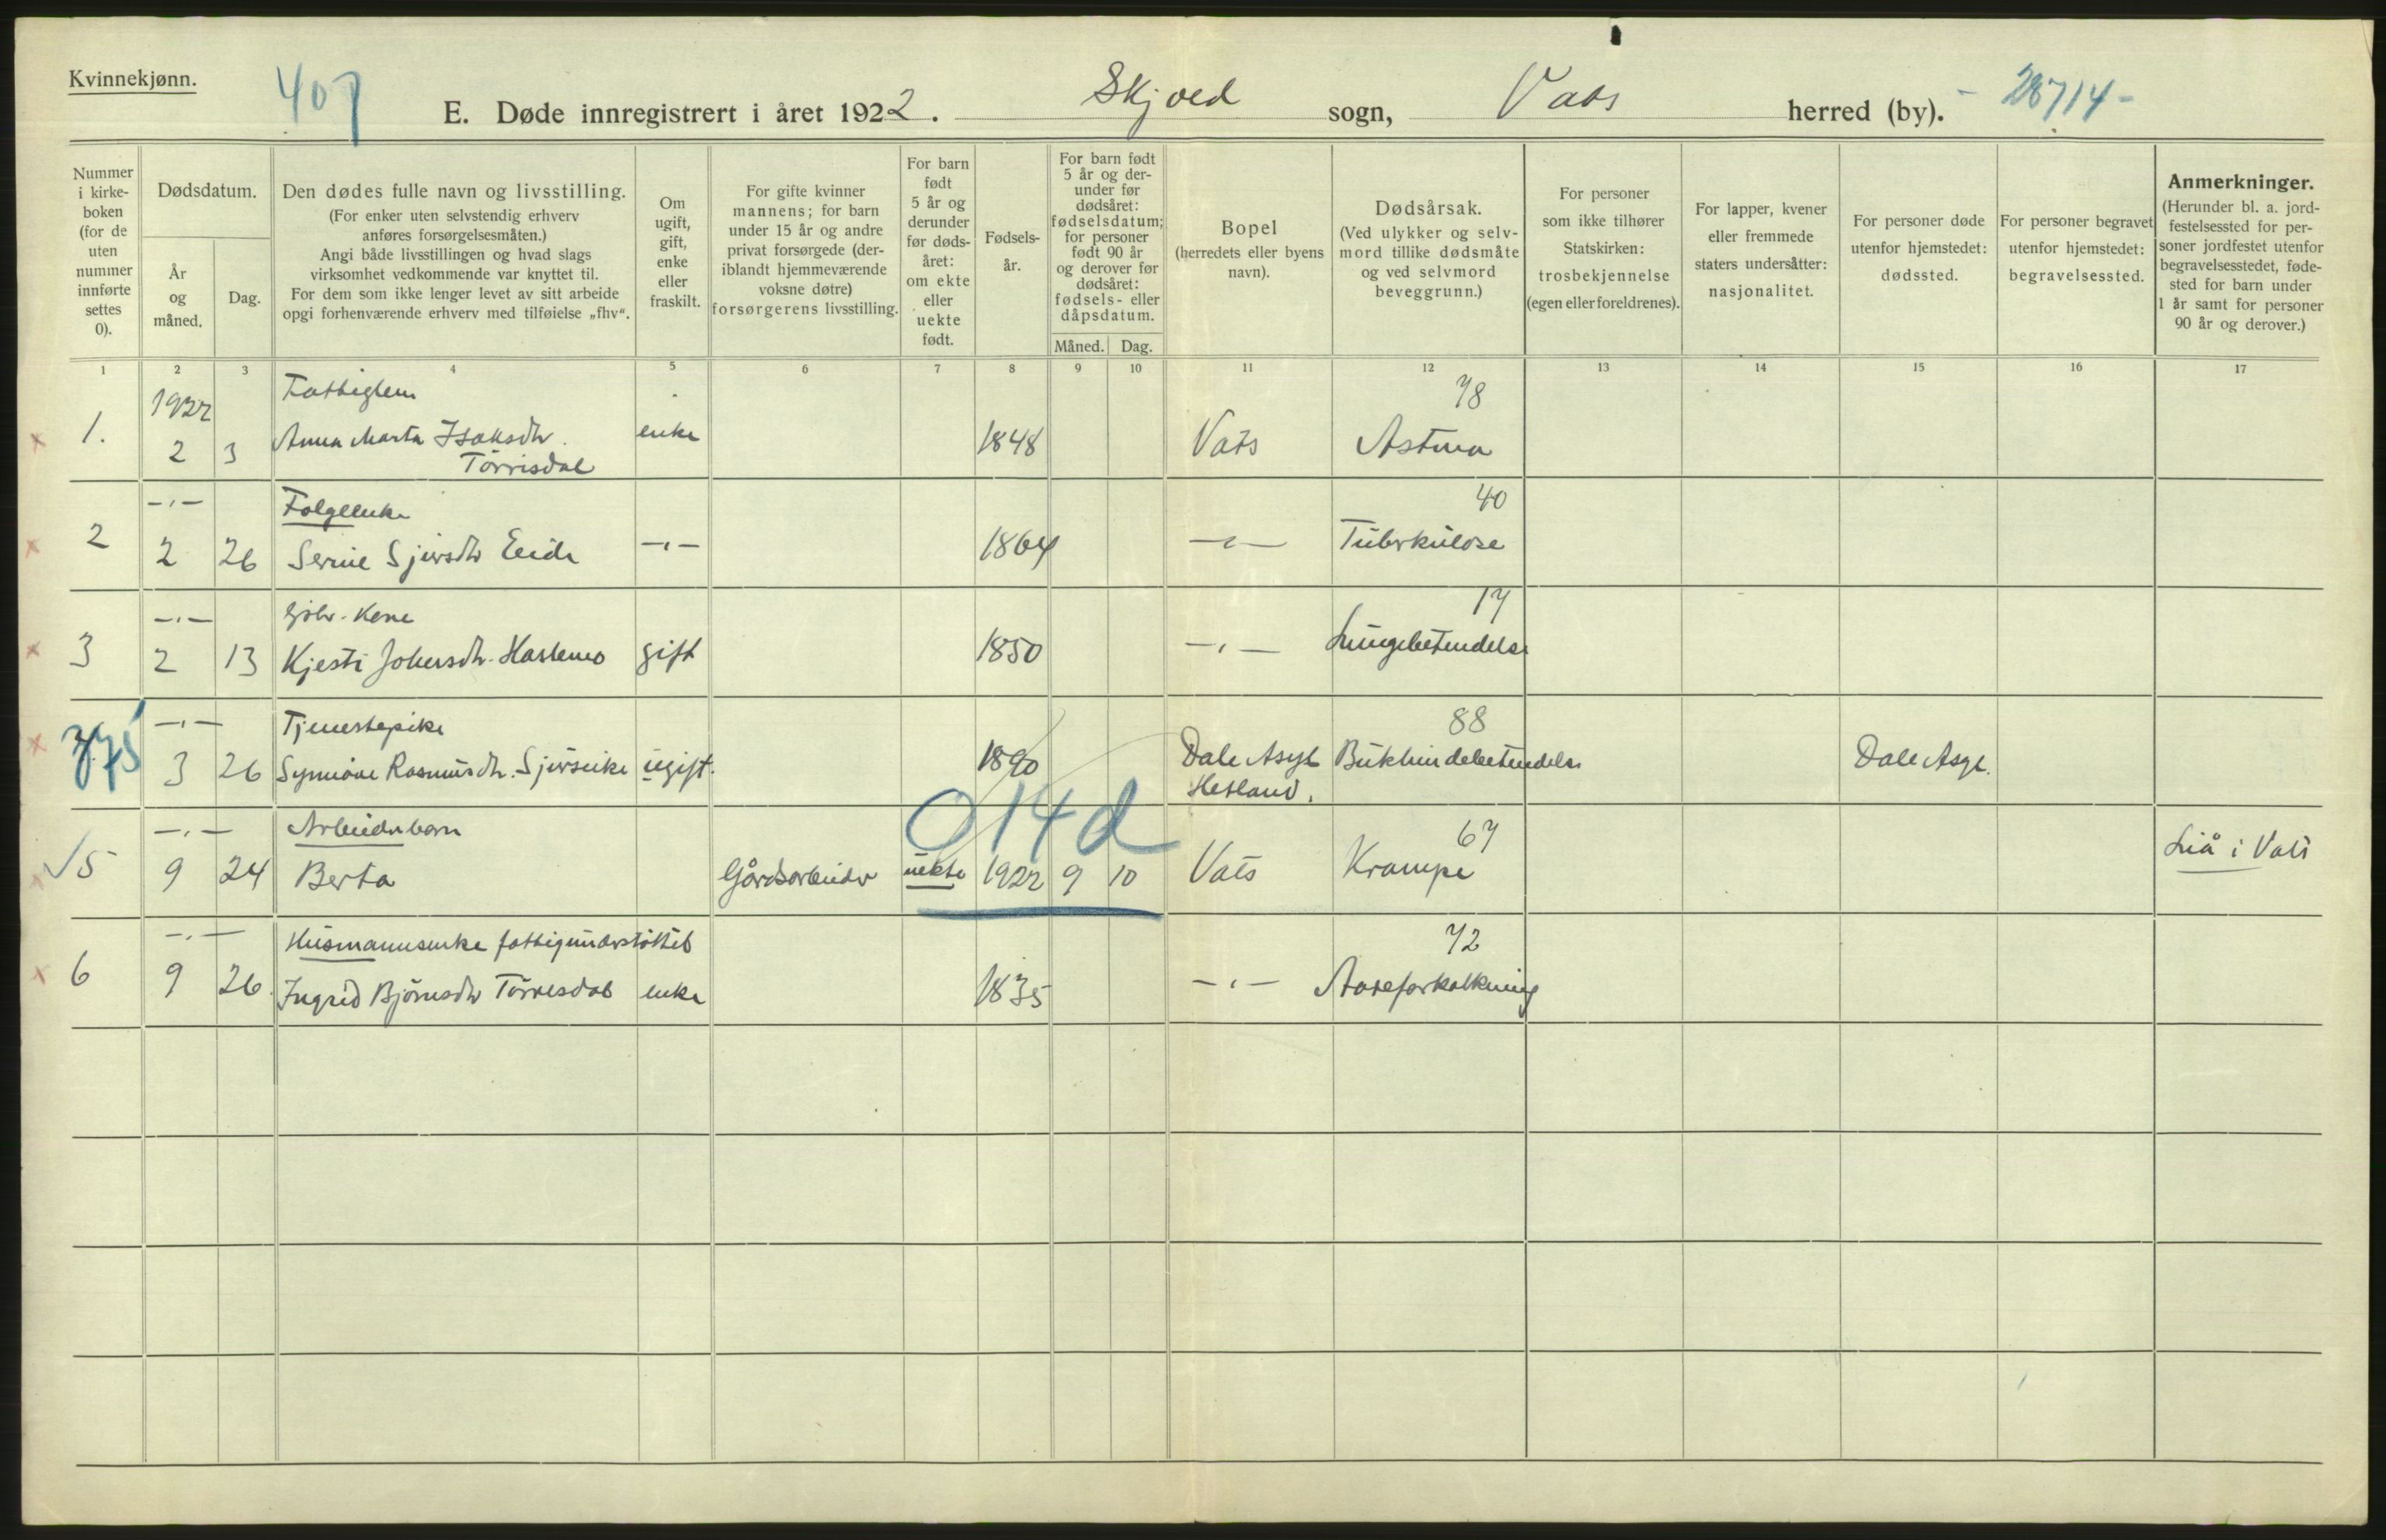 Kvinnekjønn.
407
E. Døde innregistrert i året 1922. Skjold sogn, Vats herred (by). - 28714 -
Nummer
i kirke-
boken
(for de
uten
nummer
innførte
settes
0).
Dødsdatum.
År
og
måned.
Dag.
Den dødes fulle navn og livsstilling.
(For enker uten selvstendig erhverv
anføres forsørgelsesmåten.)
Angi både livsstillingen og hvad slags
virksomhet vedkommende var knyttet til.
For dem som ikke lenger levet av sitt arbeide
opgi forhenværende erhverv med tilføielse „fhv“.
Om
ugift,
gift,
enke
eller
fraskilt.
For gifte kvinner
mannens; for barn
under 15 år og andre
privat forsørgede (der-
iblandt hjemmeværende
voksne døtre)
forsørgerens livsstilling.
For barn
født
5 år og
derunder
før døds-
året:
om ekte
eller
uekte
født.
Fødsels-
år.
For barn født
5 år og der-
under før
dødsåret:
fødselsdatum;
for personer
født 90 år
og derover før
dødsåret:
fødsels- eller
dåpsdatum.
Måned. Dag.
Bopel
(herredets eller byens
navn).
Dødsårsak.
(Ved ulykker og selv-
mord tillike dødsmåte
og ved selvmord
beveggrunn.)
For personer
som ikke tilhører
Statskirken:
trosbekjennelse
(egen eller foreldrenes).
For lapper, kvener
eller fremmede
staters undersåtter:
nasjonalitet.
For personer døde
utenfor hjemstedet:
dødssted.
For personer begravet
utenfor hjemstedet:
begravelsessted.
Anmerkninger.
(Herunder bl. a. jord-
festelsessted for per-
soner jordfestet utenfor
begravelsesstedet, føde-
sted for barn under
1 år samt for personer
90 år og derover.)
1 2 3 4 5 6 7 8 9 10 11 12 13 14 15 16 17
1922 Fattiglem 78
1. 2 3 Anna Marta Isaksdtr. enke 1848 Vats Astma
Törrisdal
-„- Folgeenke 40
2 2 26 Serine Sjursdtr Eide -„- 1864 -„- Tuberkulose
-„- Kone 17
3 2 13 Kjesti Johersdtr. gift 1850 -„- Lungebetendelse
-„- Tjenestepike 88
375 3 26 Synnöve Rasmusdtr. Sjurseike ugift. 1890 Dale Asyl Bukhindebetendelse Dale Asyl.
Hetland.
014d
-„- Arbeiderbarn 67
5 9 24 Berta Gårdsarbeider uekte 1922 9 10 Vats Krampe Liå i Vats
-„- Husmannsenke fattigunderstöttet 72
6 9 26. Ingrid Björnsdtr Törresdal enke 1835 -„- Aareforkalkning